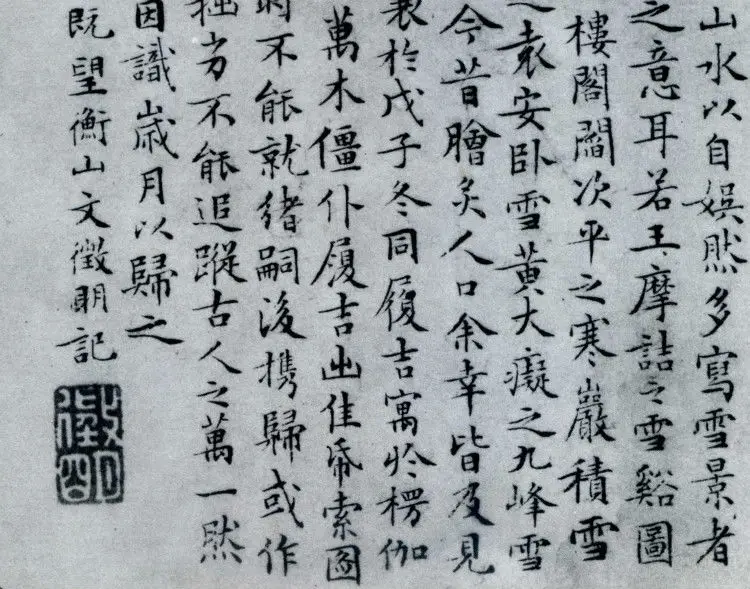 山水以自娛然多寫雪景者
之意耳若王摩詰之雪谿圖
樓閣閻次平之寒巖積雪
之袁安臥雪黃大癡之九峰雪
今昔膾炙人口余幸皆及見
曩於戊子冬同履吉寓於楞伽
萬木僵仆履吉出佳帋索圖
時不能就緒嗣後攜歸或作
拙劣不能追蹤古人之萬一然
因識歲月以歸之
既望衡山文徵明記